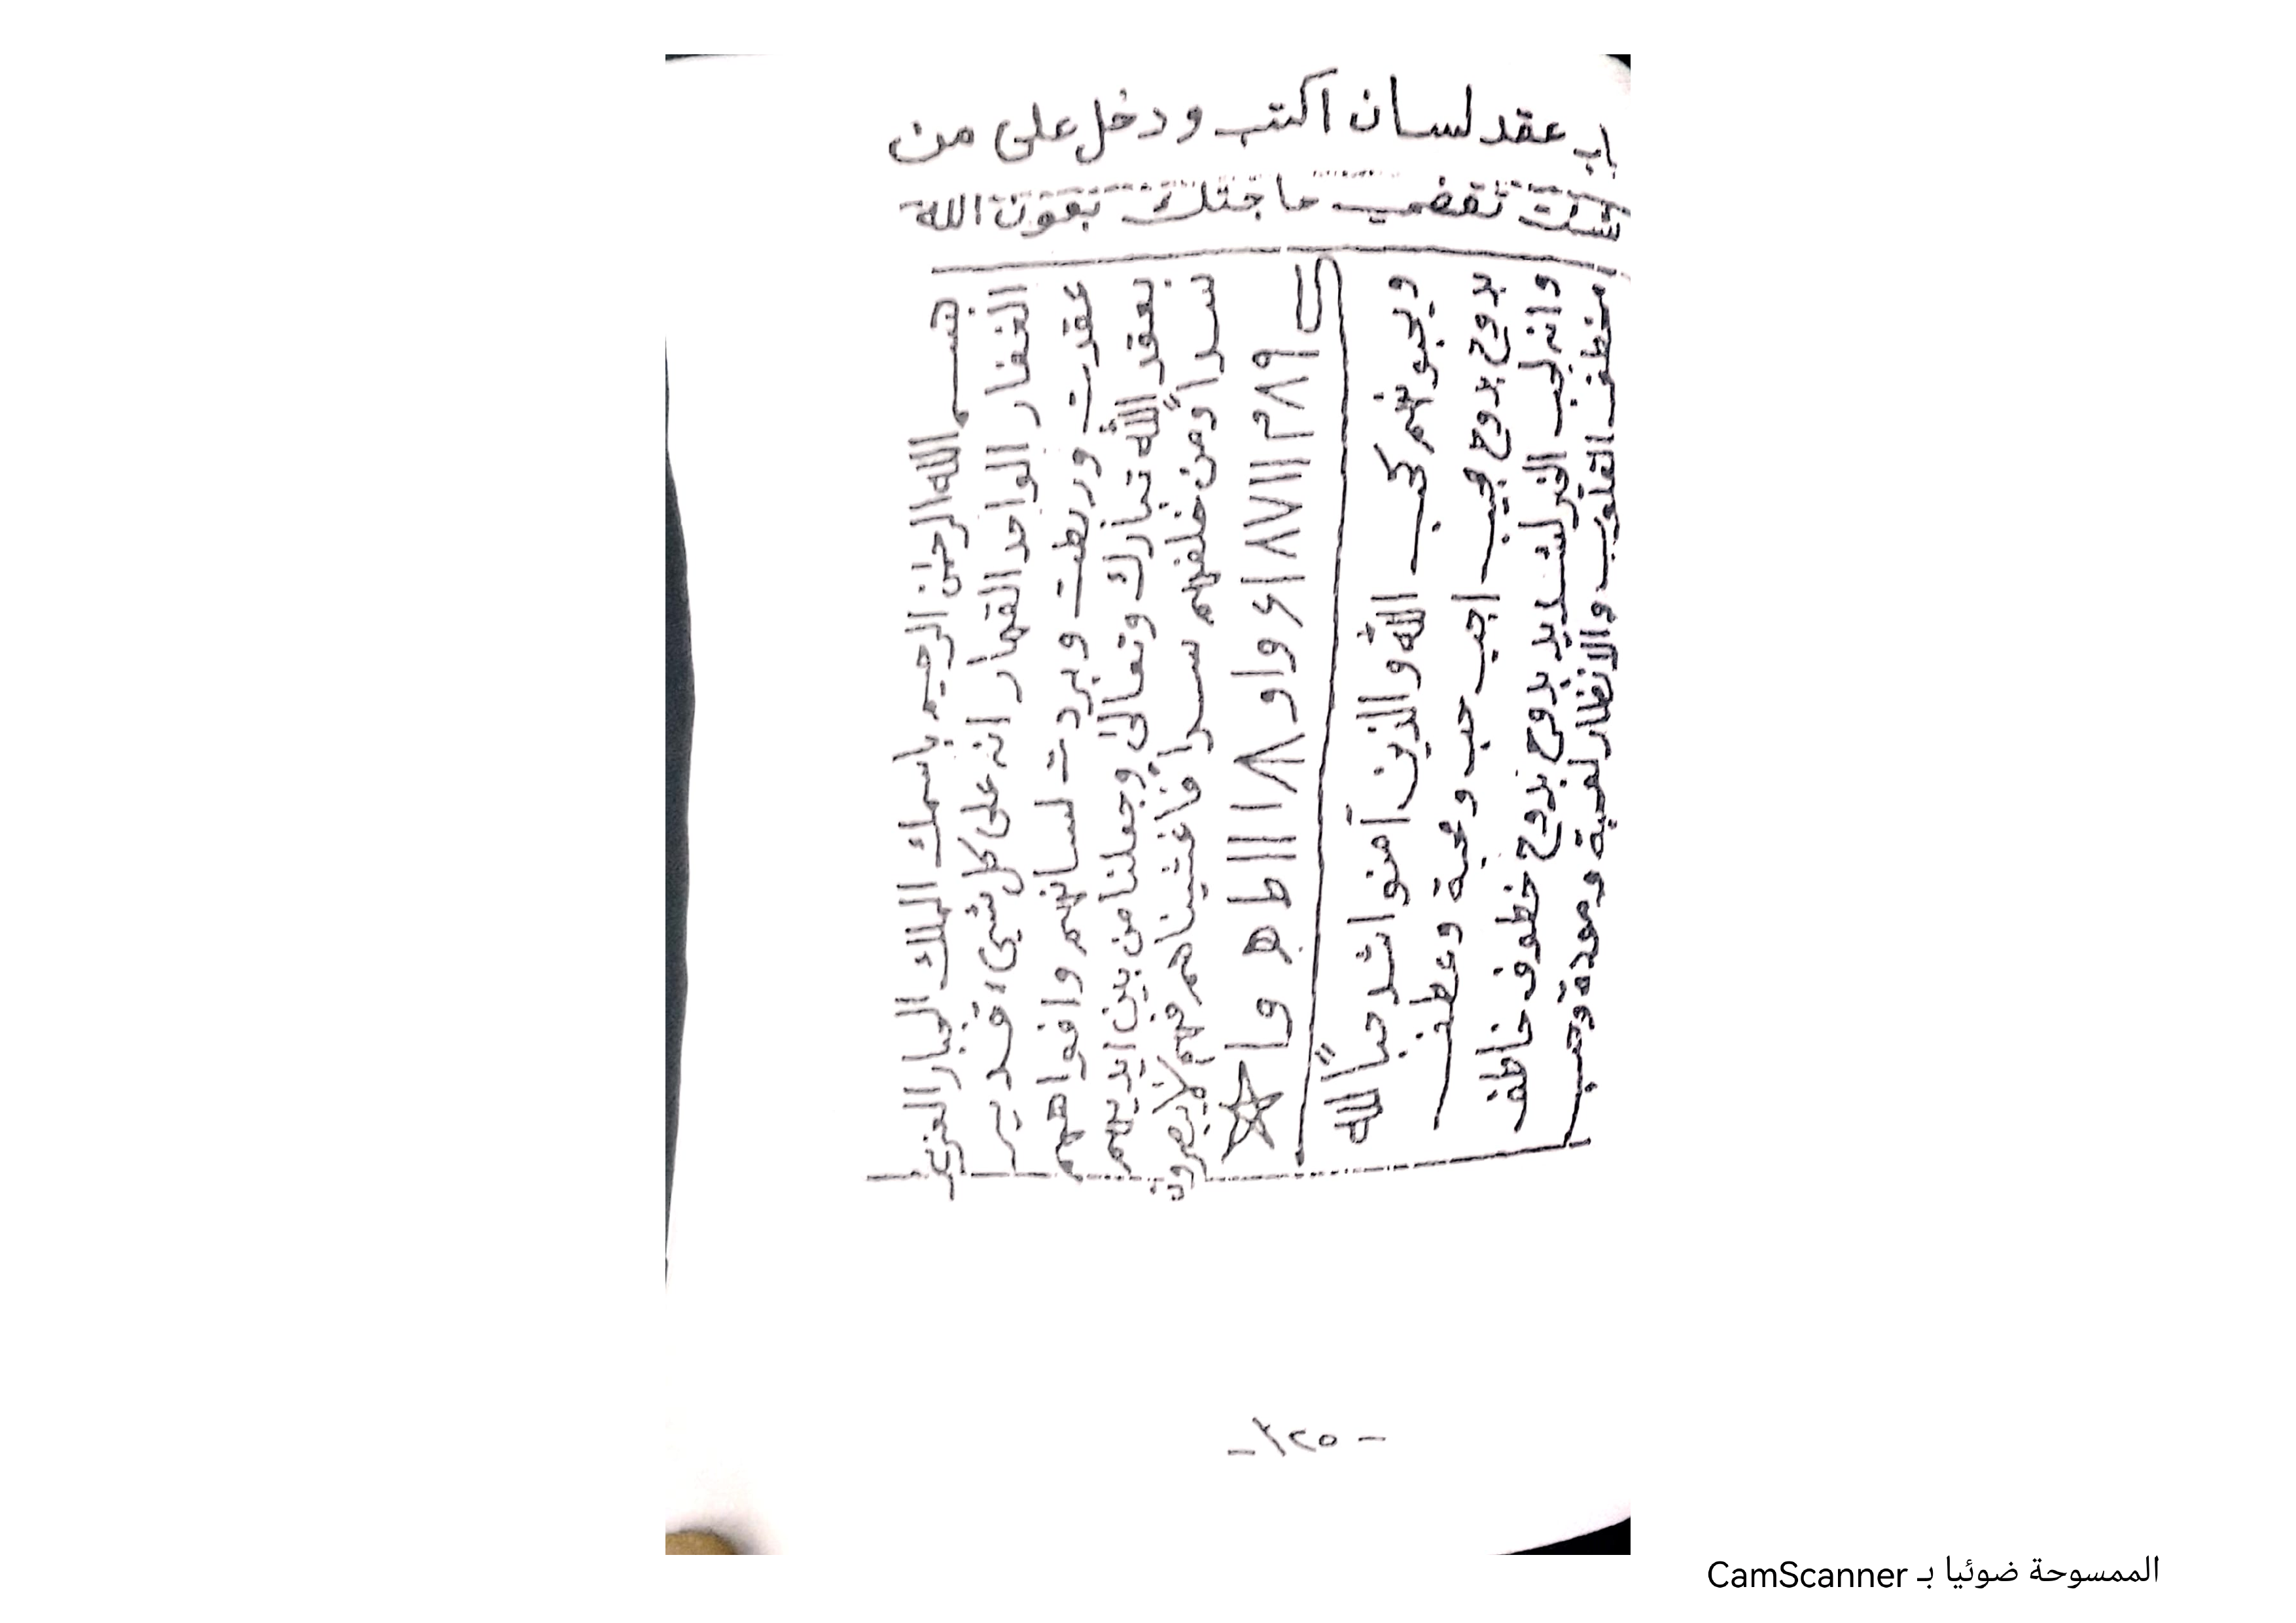 عقد لسان اكتب ودخل على من
تقضي حاجتك بعون الله
بسم الله الرحمان الرحيم باسمك الملك الجبار العزيز
الغفار الواحد القهار انه على كل شيء قدير
عقدت وربطت وبردت لسانهم وافواههم
بعقد الله تبارك وتعالى وجعلنا من بين ايديهم
سداً ومن خلفهم سداً فاغشيناهم فهم لا يبصرون
ويحبونهم كحب الله والذين آمنوا اشد حباً لله
بدوح بدوح اجب حب ومحبة وعطف
وانه لحب الخير لشديد بدوح بدوح خطوف خاطف
القلوب والانظار لمحبة ومودة
- ٢٢٥ -
الممسوحة ضوئيا بـ CamScanner